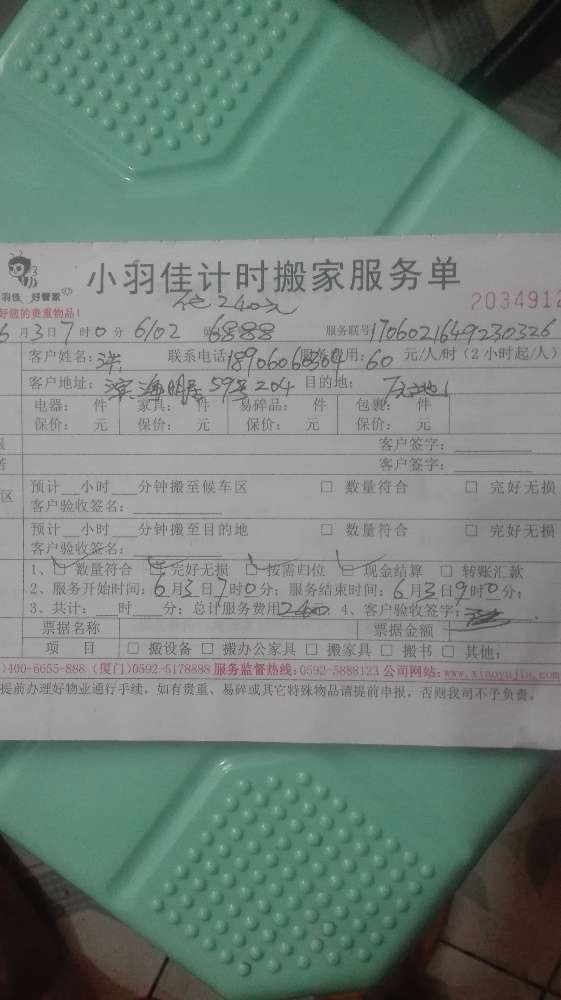 羽佳 好管家
小羽佳计时搬家服务单
好您的贵重物品!
240元
2034912
6月3日7时0分 6/02 6888 服务联号:1706021649230326
客户姓名: 联系电话: 服务费用:60元/人/时(2小时起/人)
客户地址: 59号204 目的地:
电器: 件 家具: 件 易碎品: 件 包裹: 件
保价: 元 保价: 元 保价: 元 保价: 元
客户签字:
客户签字:
区 预计__小时__分钟搬至候车区 □ 数量符合 □ 完好无损
客户验收签名:
预计__小时__分钟搬至目的地 □ 数量符合 □ 完好无损
客户验收签名:
1、□ 数量符合 □ 完好无损 □ 按需归位 □ 现金结算 □ 转账汇款
2、服务开始时间:6月3日7时0分;服务结束时间:6月3日9时0分;
3、共计:__时__分;总计服务费用240 4、客户验收签字:
票据名称 票据金额
项 目 □ 搬设备 □ 搬办公家具 □ 搬家具 □ 搬书 □ 其他:
)400-6655-888 (厦门)0592-5178888 服务监督热线:0592-5888123 公司网站:www.xiaoyujia.com
提前办理好物业通行手续,如有贵重、易碎或其它特殊物品请提前申报,否则我司不予负责。